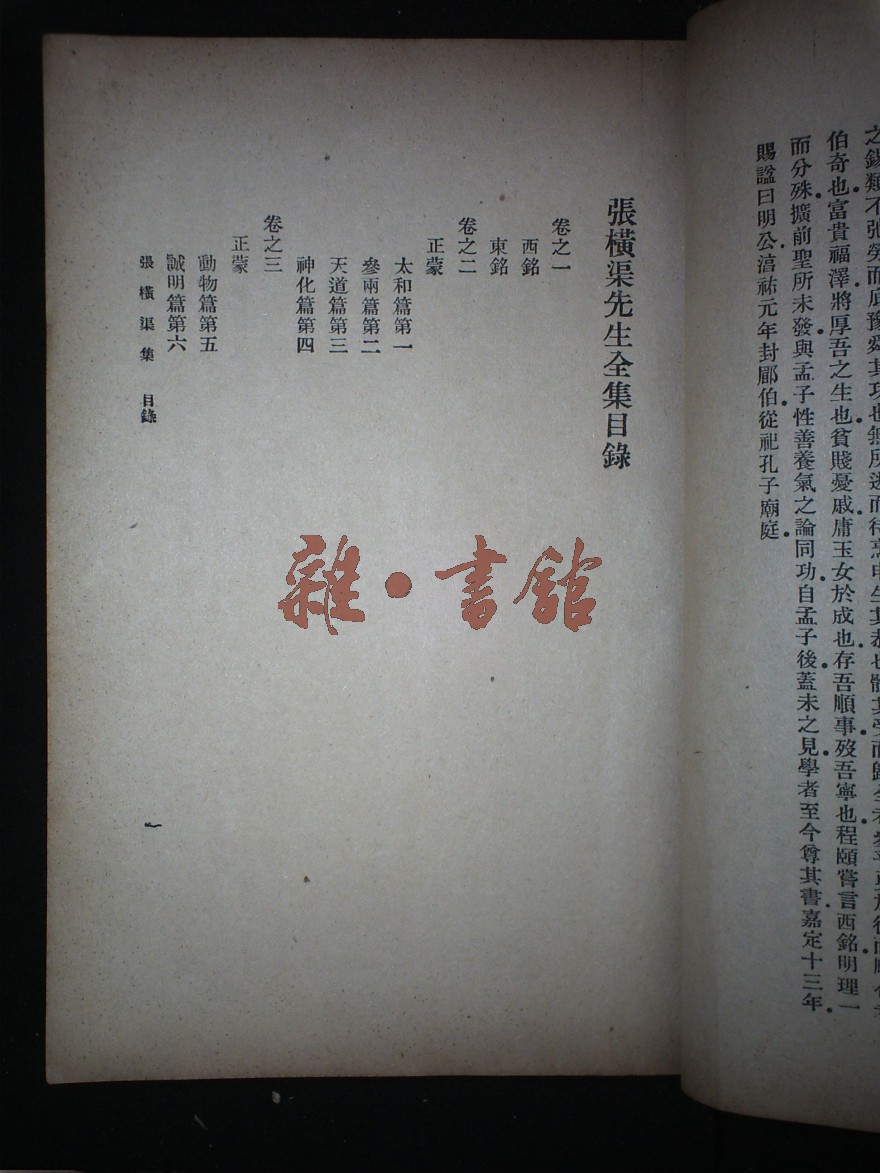 之錫類不弛勞而底豫舜其功也無所逃而待烹申生其恭也體其受而歸全者
伯奇也富貴福澤將厚吾之生也貧賤憂戚庸玉女於成也存吾順事歿吾寧也程頤嘗言西銘明理一
而分殊擴前聖所未發與孟子性善養氣之論同功自孟子後蓋未之見學者至今尊其書嘉定十三年
賜諡曰明公淳祐元年封郿伯從祀孔子廟庭
張橫渠先生全集目錄
卷之一
西銘
東銘
卷之二
正蒙
太和篇第一
參兩篇第二
天道篇第三
神化篇第四
卷之三
正蒙
動物篇第五
誠明篇第六
張橫渠集 目錄
一
雜·書館